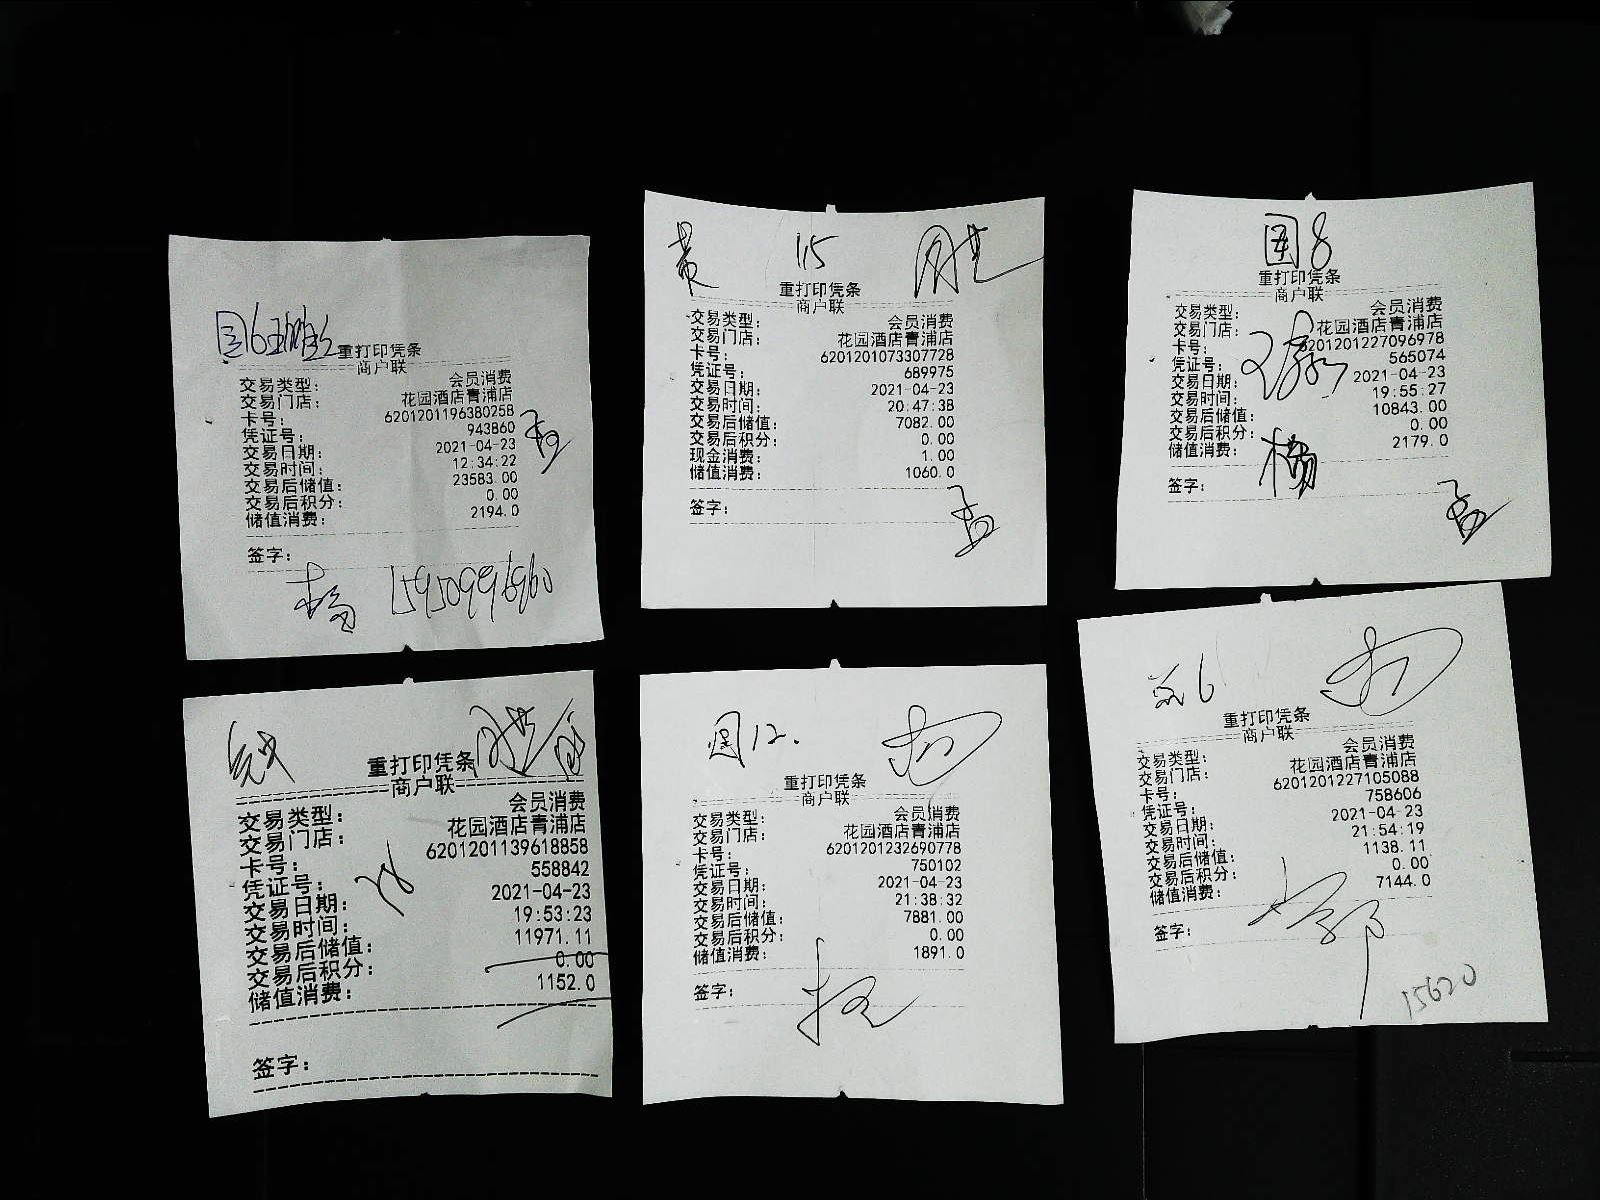 重打印凭条
商户联
交易类型： 会员消费
交易门店： 花园酒店青浦店
卡号： 6201201196380258
凭证号： 943860
交易日期： 2021-04-23
交易时间： 12:34:22
交易后储值： 23583.00
交易后积分： 0.00
储值消费： 2194.0
签字：
杨 15950996960
黄 115
重打印凭条
商户联
交易类型： 会员消费
交易门店： 花园酒店青浦店
卡号： 6201201073307728
凭证号： 689975
交易日期： 2021-04-23
交易时间： 20:47:38
交易后储值： 7082.00
交易后积分： 0.00
现金消费： 1.00
储值消费： 1060.0
签字：
国8
重打印凭条
商户联
交易类型： 会员消费
交易门店： 花园酒店青浦店
卡号： 6201201227096978
凭证号： 565074
交易日期： 2021-04-23
交易时间： 19:55:27
交易后储值： 10843.00
交易后积分： 0.00
储值消费： 2179.0
签字： 杨
重打印凭条
商户联
交易类型： 会员消费
交易门店： 花园酒店青浦店
卡号： 6201201139618858
凭证号： 558842
交易日期： 2021-04-23
交易时间： 19:53:23
交易后储值： 11971.11
交易后积分： 0.00
储值消费： 1152.0
签字：
国12.
重打印凭条
商户联
交易类型： 会员消费
交易门店： 花园酒店青浦店
卡号： 6201201232690778
凭证号： 750102
交易日期： 2021-04-23
交易时间： 21:38:32
交易后储值： 7881.00
交易后积分： 0.00
储值消费： 1891.0
签字：
重打印凭条
商户联
交易类型： 会员消费
交易门店： 花园酒店青浦店
卡号： 6201201227105088
凭证号： 758606
交易日期： 2021-04-23
交易时间： 21:54:19
交易后储值： 1138.11
交易后积分： 0.00
储值消费： 7144.0
签字：
15620